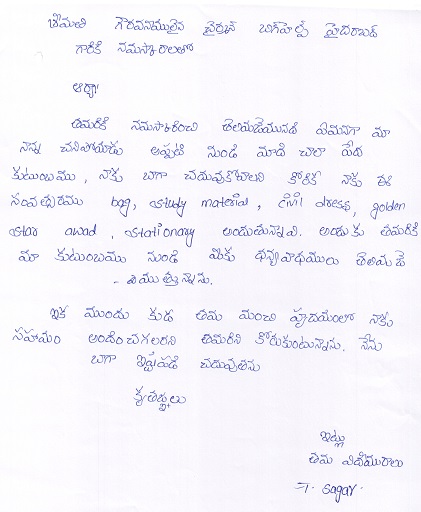 శ్రీమతి గౌరవనీయులైన చైర్మన్ బిగ్‌హెల్ప్ హైదరాబాద్
గారికి నమస్కారాలతో
ఆర్యా
తమరికి నమస్కారించి తెలియజేయునది ఏమనగా మా
నాన్న చనిపోయాడు అప్పటి నుండి మాది చాలా పేద
కుటుంబము, నాకు బాగా చదువుకోవాలని కోరిక నాకు ఈ
సంవత్సరము bag, study material, civil dress, golden
star awad, stationary అందుతున్నవి. అందుకు తమరికి
మా కుటుంబము నుండి మీకు ధన్యవాధములు తెలియజే
- యుచున్నాను.
ఇక ముందు కుడ తమ మంచి హృదయంలో నాకు
సహాయం అందించగలరని తమరిని కోరుకుంటున్నాను. నేను
బాగా ఇష్టపడి చదువుతను
కృతజ్ఞలు
ఇట్లు
తమ విదేయురాలు
sagar.